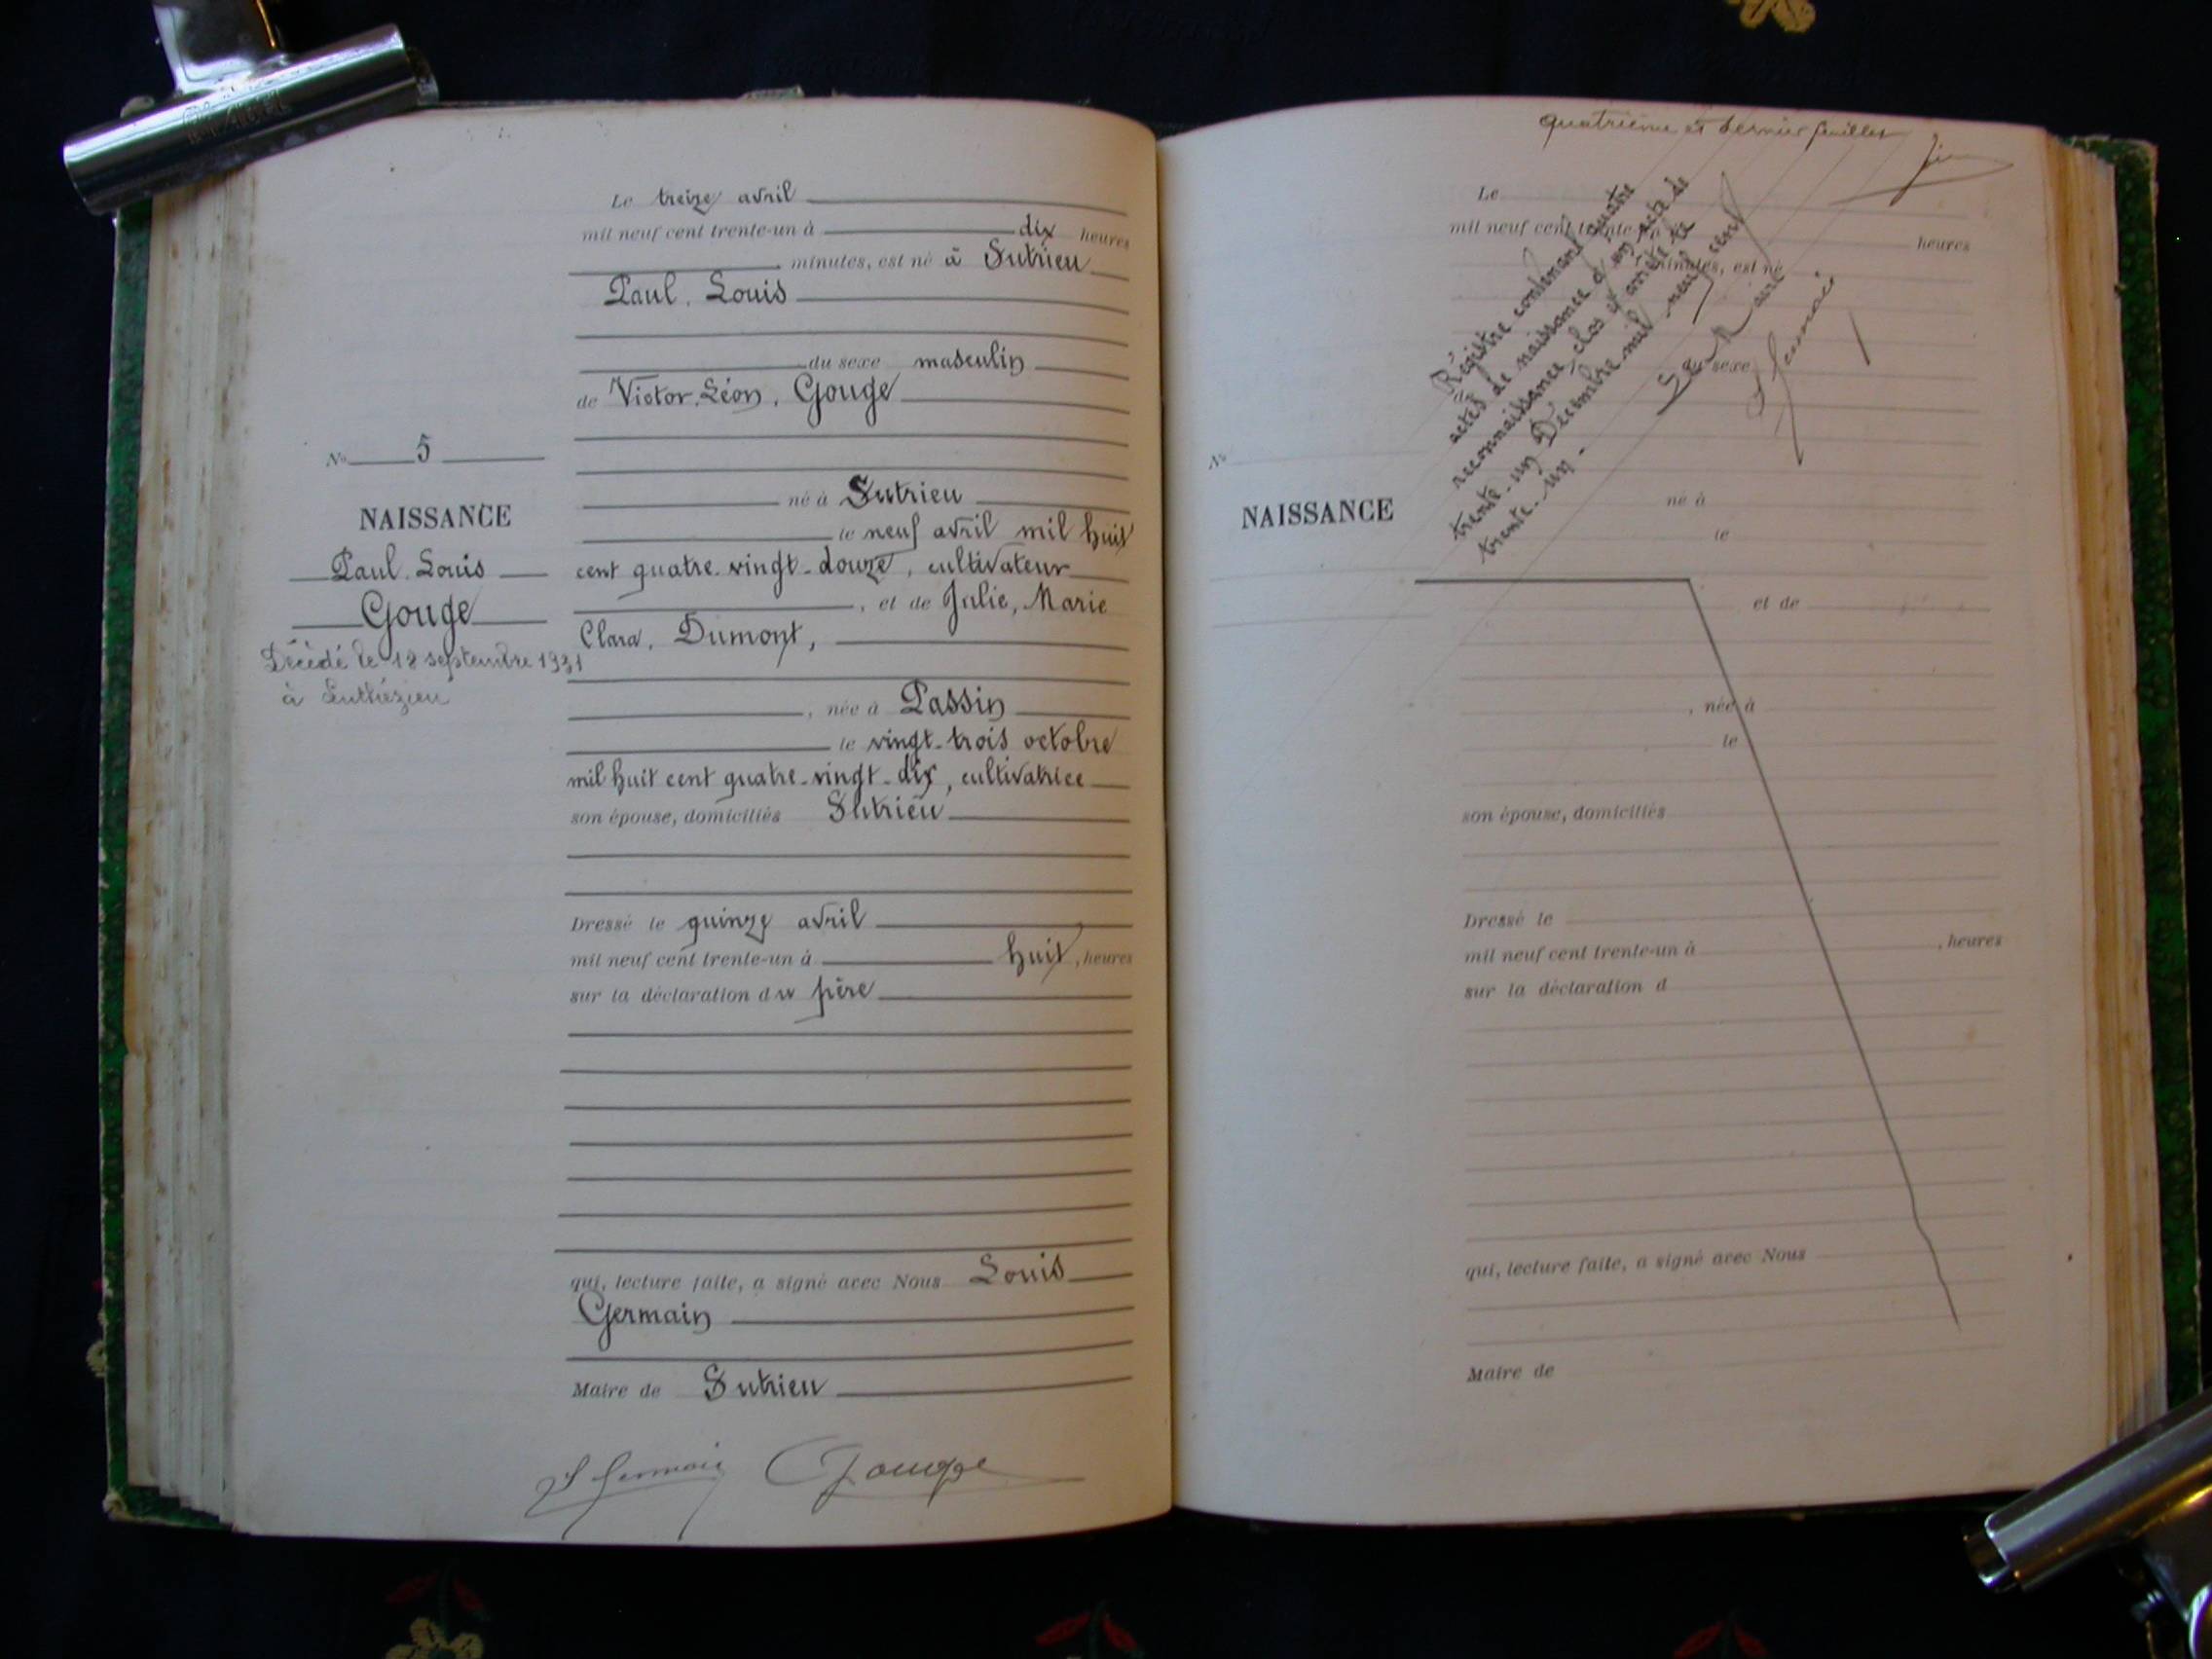 Le treize avril
mil neuf cent trente-un à dix heures
minutes, est né à Sutrieu
Paul, Louis
du sexe masculin
de Victor, Léon, Gouge
né à Sutrieu
le neuf avril mil huit
cent quatre-vingt-douze, cultivateur
, et de Julie, Marie
Clara, Dumont,
, née à Passin
le vingt-trois octobre
mil huit cent quatre-vingt-dix, cultivatrice
son épouse, domiciliés Sutrieu
Dressé le quinze avril
mil neuf cent trente-un à huit, heures
sur la déclaration du père
qui, lecture faite, a signé avec Nous Louis
Germain
Maire de Sutrieu
Germain Gouge
No 5
NAISSANCE
Paul, Louis
Gouge
Décédé le septembre 1931
à
quatrième et dernier feuillet
Le
mil neuf cent trente-un heures
minutes, est né
Régistre contenant quatre
actes de naissance d'un acte de
reconnaissance, clos et arrêté le
trente-un Décembre mil neuf cent
trente-un -
Le Maire
Germain
du sexe
de
No
NAISSANCE
né à
le
et de
, née à
le
son épouse, domiciliés
Dressé le
mil neuf cent trente-un à , heures
sur la déclaration d
qui, lecture faite, a signé avec Nous
Maire de